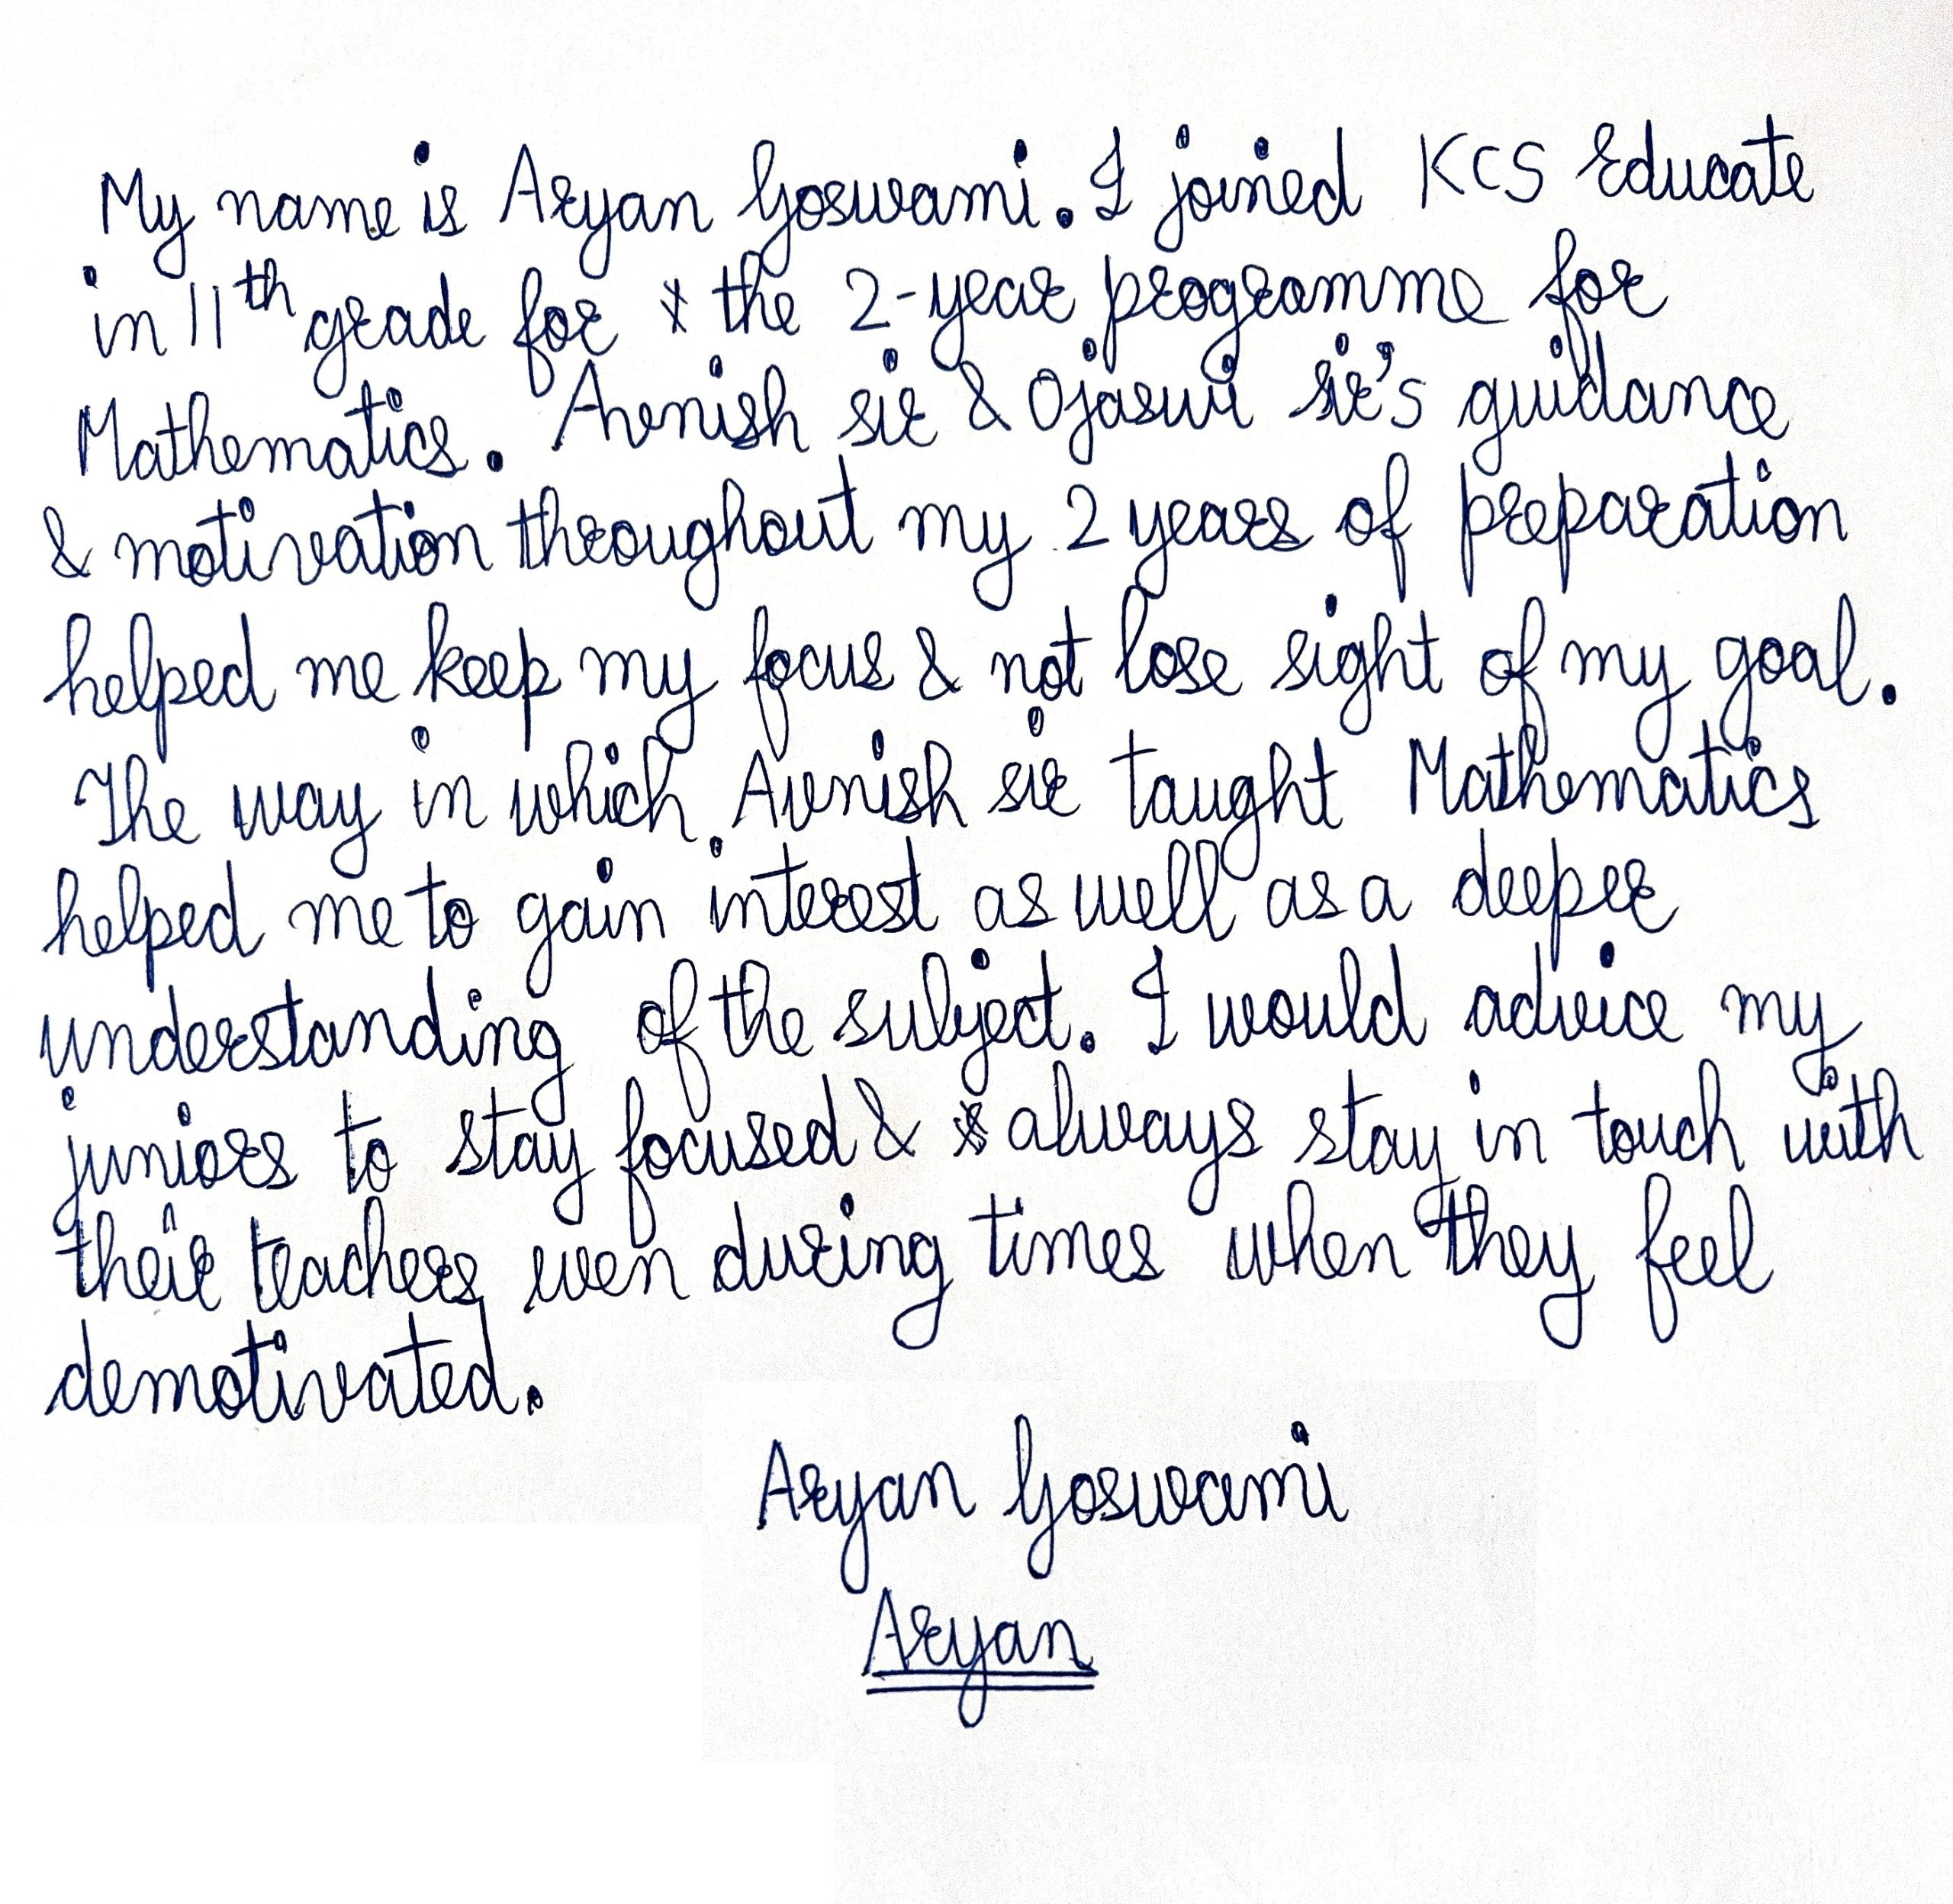 My name is Aryan Goswami. I joined KCS Educate
in 11th grade for the 2-year programme for
Mathematics. Avnish sir & Ojaswi sir's guidance
& motivation throughout my 2 years of preparation
helped me keep my focus & not lose sight of my goal.
The way in which Avnish sir taught Mathematics
helped me to gain interest as well as a deeper
understanding of the subject. I would advice my
juniors to stay focused & always stay in touch with
their teachers even during times when they feel
demotivated.
Aryan Goswami
Aryan